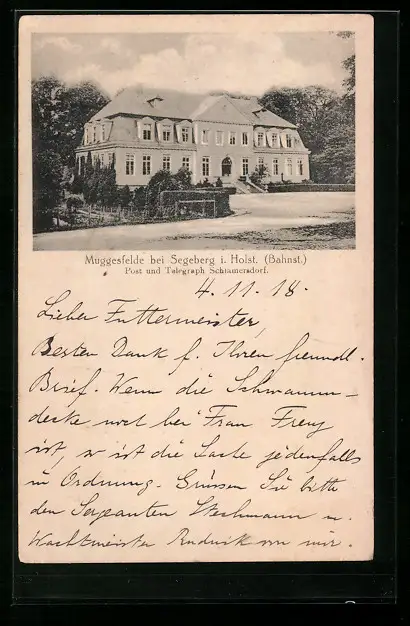 Muggesfelde bei Segeberg i. Holst. (Bahnst.)
Post und Telegraph Schlamersdorf.
4. 11. 18.
Lieber Futtermeister,
Besten Dank f. Ihren freundl.
Brief. Wenn die Schwamm-
decke bei Frau Frey
ist, so ist die Sache jedenfalls
in Ordnung. Grüssen Sie bitte
den Sergeanten Weshmann u.
Wachtmeister von mir.